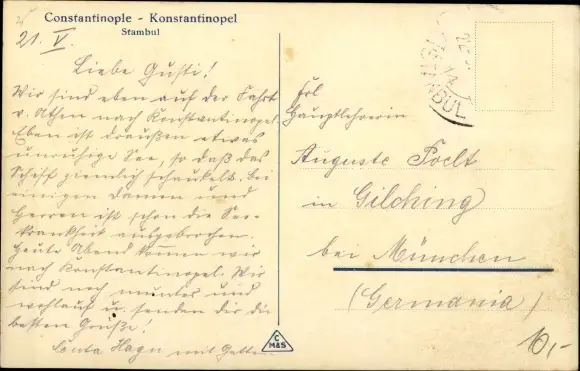 Constantinople - Konstantinopel
Stambul
21. V.
Liebe Gusti!
Wir sind eben auf der Fahrt
v. Athen nach Konstantinopel.
Eben ist draußen etwas
unruhige See, so daß das
Schiff ziemlich schaukelt. Bei
einigen Damen und
Herren ist schon die See-
krankheit ausgebrochen.
Heute Abend kommen wir
nach Konstantinopel. Wir
sind noch munter und
wohlauf u. senden dir die
besten Grüße!
Hagn mit
C
M&S
BUL
Frl
Hauptlehrerin
Auguste
in Gilching
bei München
(Germania)
10,-